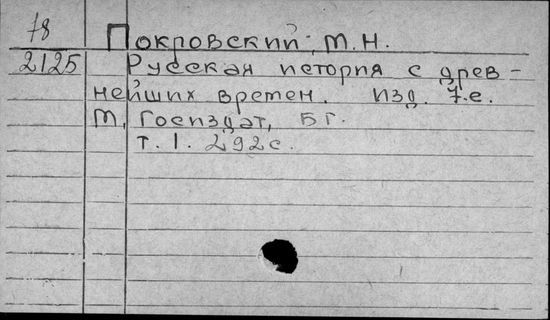 78
Покровский, М.Н.
2125
Русская история с древ-
нейших времен. изд. 7.е.
М, Госиздат, Б г.
т. I. 292 с.